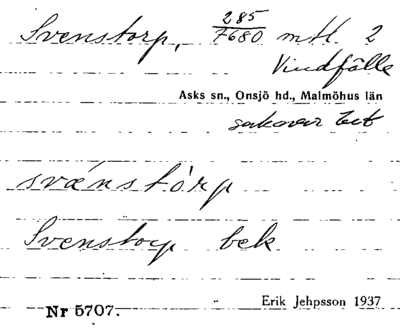 Svenstorp, 285/7680 mtl. 2
Vindfälle
Asks sn., Onsjö hd., Malmöhus län
svänstórp
Svenstorp bek
Erik Jehpsson 1937
Nr 5707.